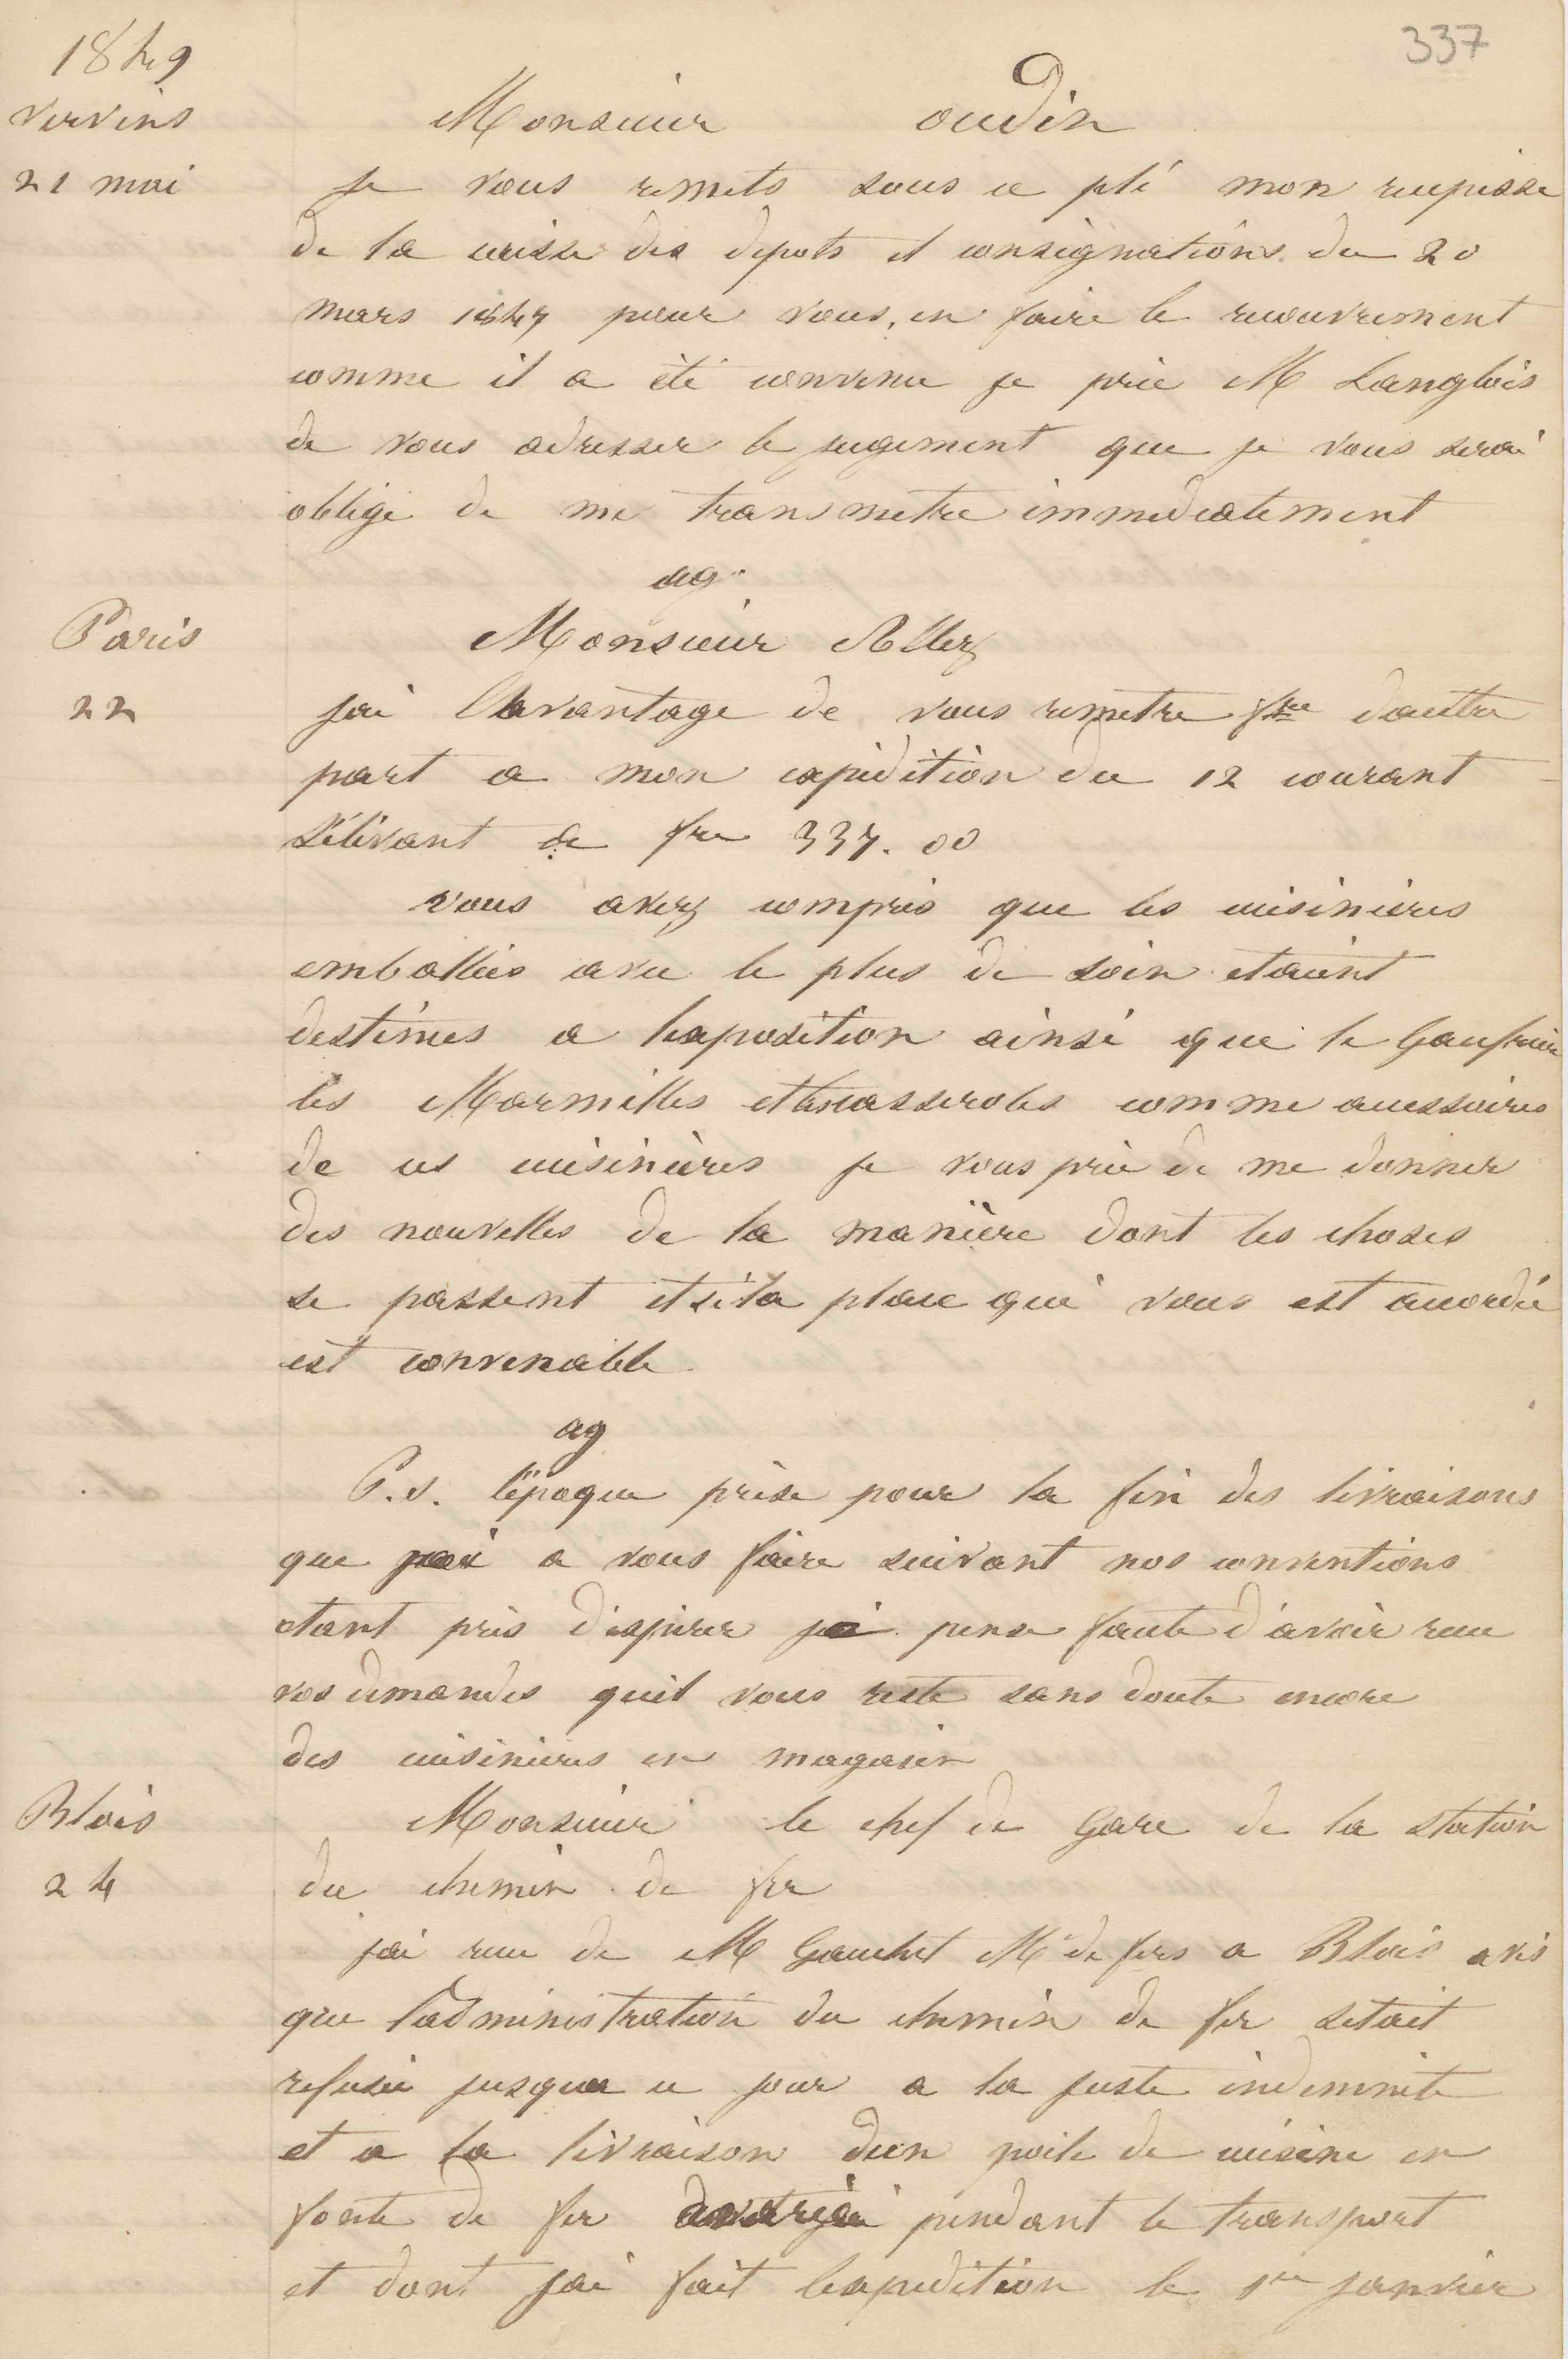 337
1849
vervins
21 mai
Monsieur oudin
je vous remets sous ce pli mon recepisse
de la caisse des depots et consignations du 20
mars 1847 pour vous, en faire le recouvrement
comme il a été convenu je prie M Langlois
de vous adresser le jugement que je vous serai
obligé de me transmetre immediatement
ag
Paris
22
Monsieur Allez
jai l'avantage de vous remetre fre dautre
part a mon expedition du 12 courant
s'élévant a fr 337.00
vous avez compris que les cuisinieres
emballées avec le plus de soin etaient
destinées a lexposition ainsi que le Gaufrier
les Marmittes et les casseroles comme accessoires
de ces cuisinières je vous prie de me donner
des nouvelles de la manière dont les choses
se passent et si la place qui vous est accordée
est convenable
ag
P.S. l'époque prise pour la fin des livraisons
que jai a vous faire suivant nos conventions
etant près d'expirer jai pense faute d'avoir recu
vos demandes quil vous reste sans doute encore
des cuisinieres en magasin
Blois
24
Monsieur le chef de Gare de la station
du chemin de fer
jai recu de M Gauchet Md de fers a Blois avis
que l'administration du chemin de fer setait
refusée jusqua ce jour a la juste indemnite
et a la livraison dun poile de cuisine en
fonte de fer pendant le transport
et dont jai fait lexpedition le 1er janvier